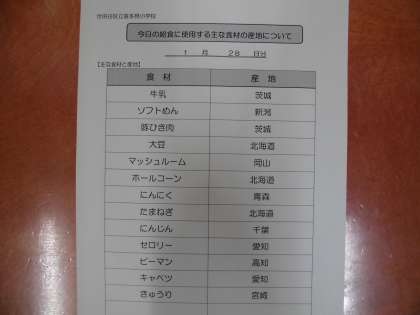 世田谷区立喜多見小学校
今日の給食に使用する主な食材の産地について
1 月 28 日分
【主な食材と産地】
食 材 産 地
牛乳 茨城
ソフトめん 新潟
豚ひき肉 茨城
大豆 北海道
マッシュルーム 岡山
ホールコーン 北海道
にんにく 青森
たまねぎ 北海道
にんじん 千葉
セロリー 愛知
ピーマン 高知
キャベツ 愛知
きゅうり 宮崎